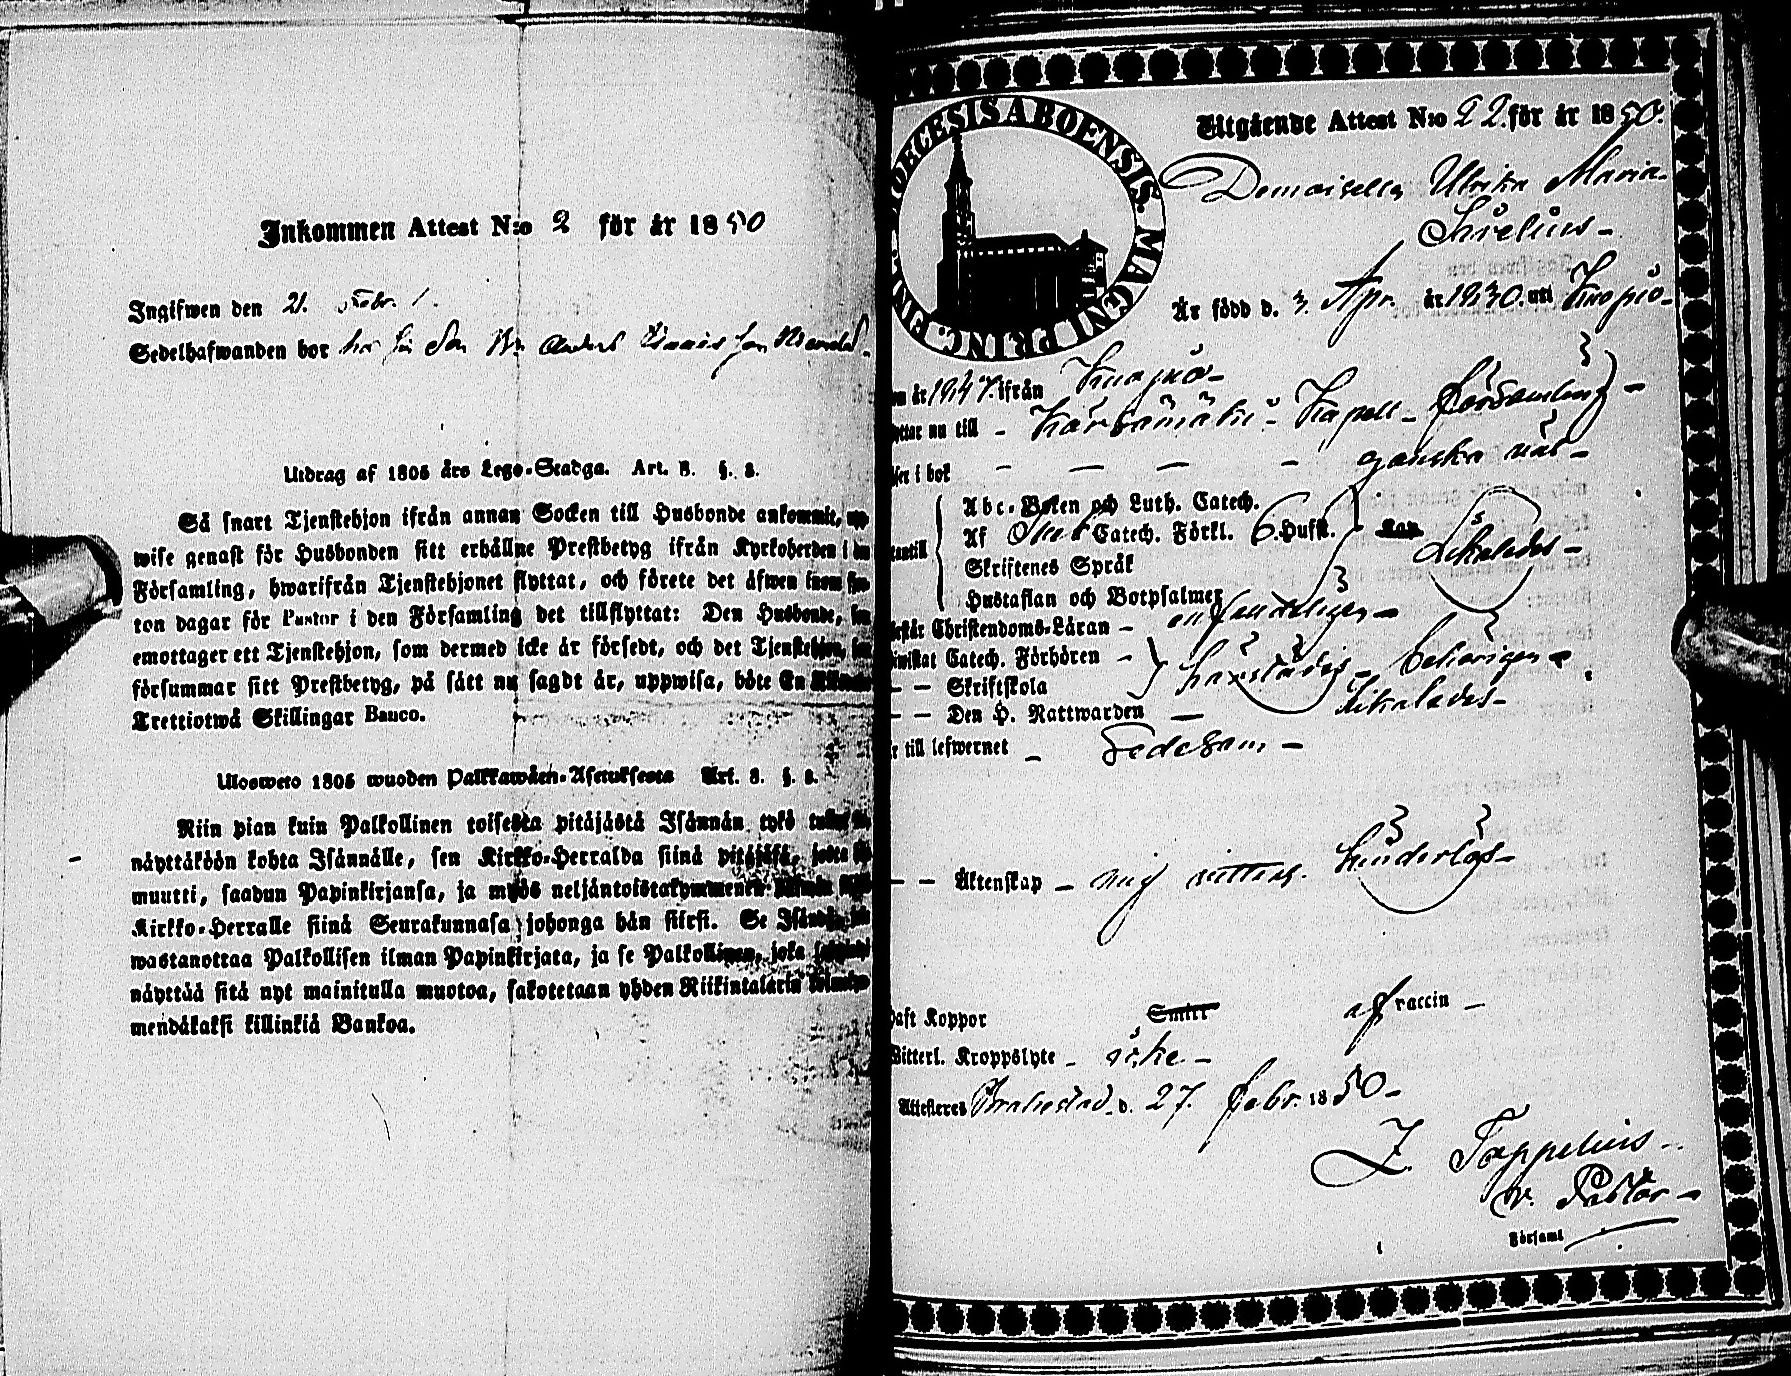 Inkommen Attest N:o 2 för år 1850
Ingifwen den 21. Febr.
Sedelhafwanden bor hos
Utdrag af 1805 års Lego-Stadga. Art. 8. §. 8.
Så snart Tjenstehjon ifrån annan Socken till Husbonde ankommit, upp-
wise genast för Husbonden sitt erhållne Prestbetyg ifrån Kyrkoherden i den
Församling, hwarifrån Tjenstehjonet flyttat, och förete det äfwen inom fjor-
ton dagar för Pastor i den Församling det tillflyttat: Den Husbonde, som
emottager ett Tjenstehjon, som dermed icke är försedt, och det Tjenstehjon, som
försummar sitt Prestbetyg, på sätt nu sagdt är, uppwisa, böte En Riksdaler
Trettiotwå Skillingar Banco.
Ulosweto 1805 wuoden Palkkawäen-Asetuksesta Art. 8. §. 8.
Niin pian kuin Palkollinen toisesta pitäjästä Isännän tykö
näyttäköön kohta Isännälle, sen Kirkko-Herralda siinä pitäjäsä, josta
muutti, saadun Papinkirjansa, ja myös neljäntoistakymmenen
Kirkko-Herralle siinä Seurakunnasa johonga hän siirsi. Se Isändä, joka
wastanottaa Palkollisen ilman Papinkirjata, ja se Palkollinen, joka
näyttää sitä nyt mainitulla muotoa, sakotetaan yhden Riikintalarin
mendäkaksi killinkiä Bankoa.
DIOECESIS ABOENSIS. MAGNI PRINC. FINL.
Utgående Attest N:o 22. för år 1850.
Demoiselle Ulrika Maria
Sirelius
Är född d. 3. Apr. år 1830. uti Kuopio
år 1847. ifrån Kuopio
flyttar nu till Kärsämäki Kapell Församling
läser i bok ganska väl
Abc-Boken och Luth. Catech.
Af Catech. Förkl. Husfl.
Likaledes
Skriftenes Språk
Hustaflan och Botpsalmer
Christendoms-Läran
Catech. Förhören
Skriftskola behörigen
Den H. Nattwarden likaledes
till lefwernet Sedesam
Äktenskap mig hinderlös
haft Koppor af vaccin
Witterl. Kroppslyte icke
Attesteres Brahestad d. 27. Febr. 1850
Z. Toppelius
v. Pastor
Församl